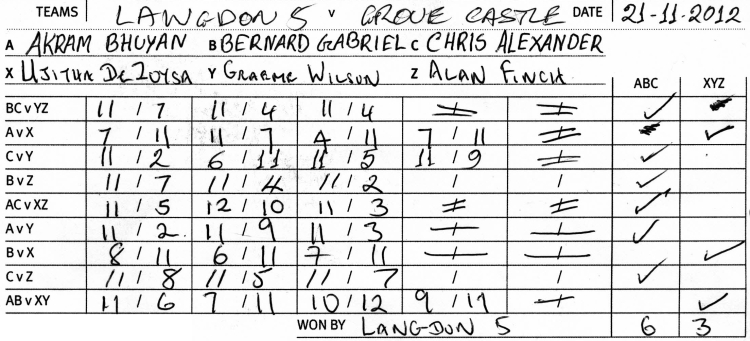 TEAMS LANGDON 5 v GROVE CASTLE DATE 21-11-2012
A AKRAM BHUYAN B BERNARD GABRIEL C CHRIS ALEXANDER
X UJITHA DE ZOYSA Y GRAEME WILSON Z ALAN FINCH ABC XYZ
BC v YZ 11 / 7 11 / 4 11 / 4
A v X 7 / 11 11 / 7 4 / 11 7 / 11
C v Y 11 / 2 6 / 11 11 / 5 11 / 9
B v Z 11 / 7 11 / 4 11 / 2 / /
AC v XZ 11 / 5 12 / 10 11 / 3
A v Y 11 / 2 11 / 9 11 / 3
B v X 8 / 11 6 / 11 7 / 11
C v Z 11 / 8 11 / 5 11 / 7 / /
AB v XY 11 / 6 7 / 11 10 / 12 9 / 11
WON BY LANGDON 5 6 3